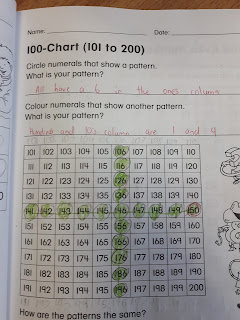 Name: Date:
100-Chart (101 to 200)
Circle numerals that show a pattern.
What is your pattern?
All have a 6 in the ones column
Colour numerals that show another pattern.
What is your pattern?
Hundred and 10s column are 1 and 4
101 102 103 104 105 106 107 108 109 110
111 112 113 114 115 116 117 118 119 120
121 122 123 124 125 126 127 128 129 130
131 132 133 134 135 136 137 138 139 140
141 142 143 144 145 146 147 148 149 150
151 152 153 154 155 156 157 158 159 160
161 162 163 164 165 166 167 168 169 170
171 172 173 174 175 176 177 178 179 180
181 182 183 184 185 186 187 188 189 190
191 192 193 194 195 196 197 198 199 200
How are the patterns the same?